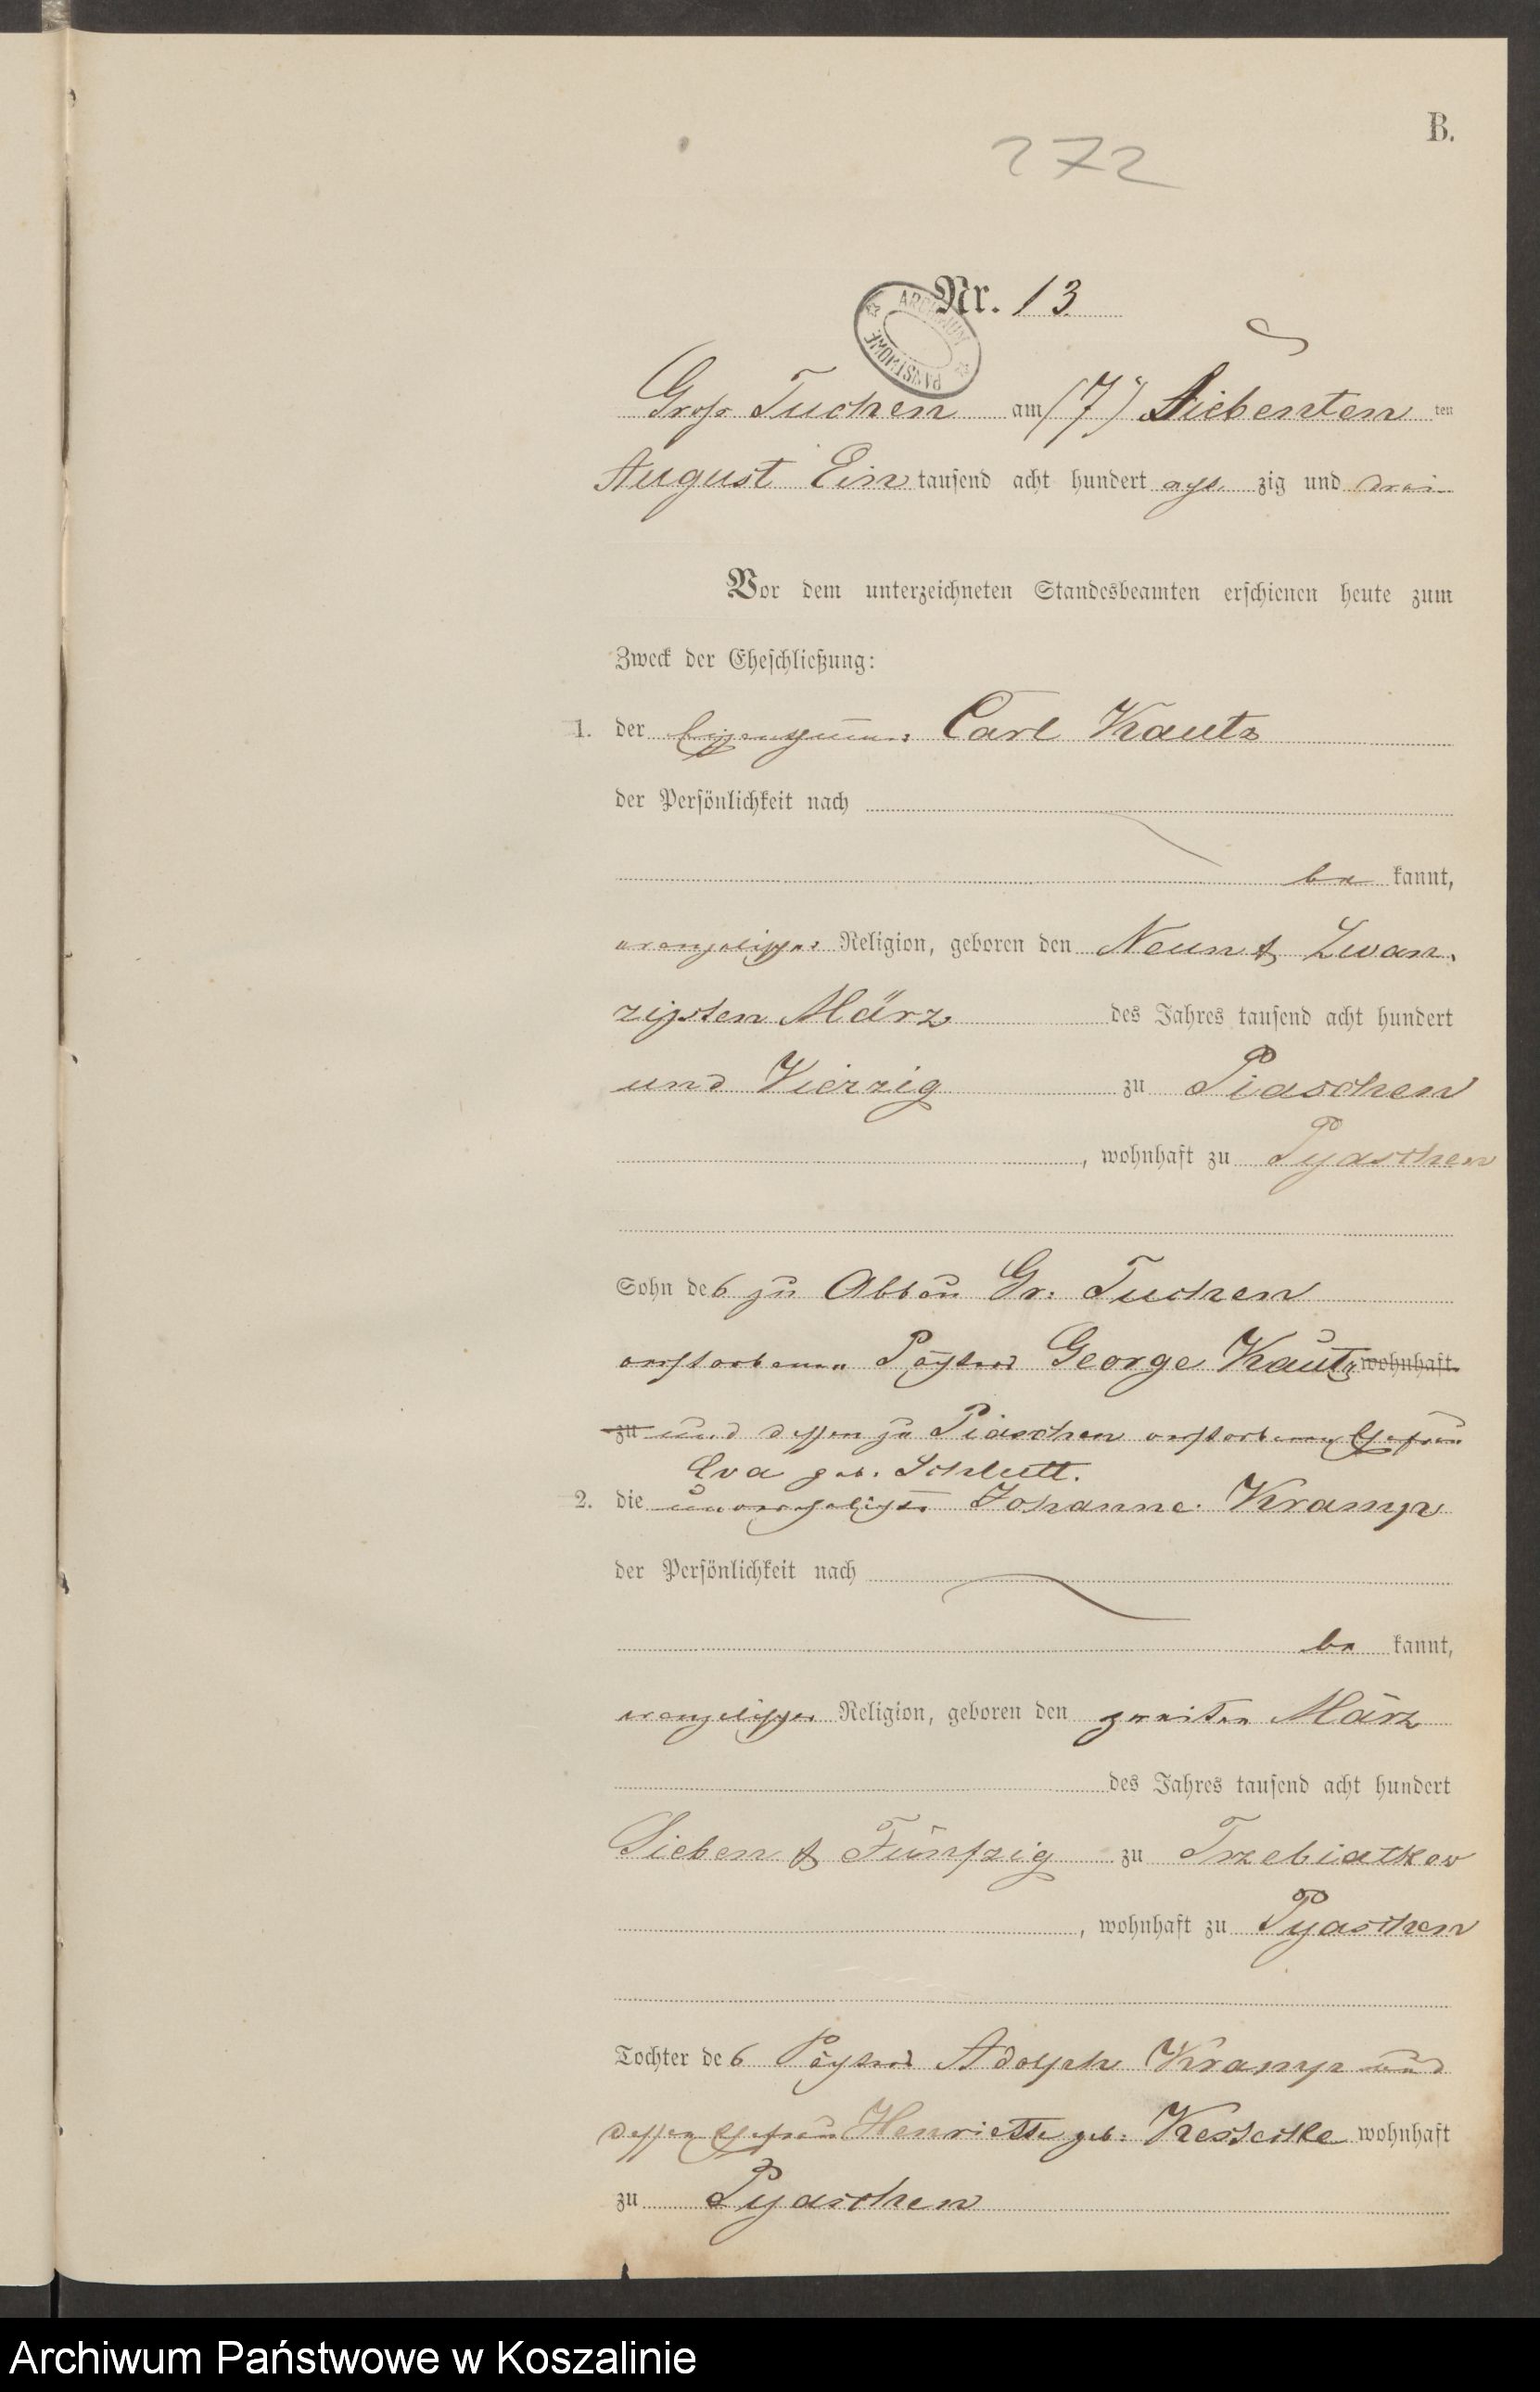 B.
272
Nr. 13
ARCHIWUM PAŃSTWOWE
Groß Tuchen am (7") Siebenten ten
August Ein tausend acht hundert acht zig und drei
Vor dem unterzeichneten Standesbeamten erschienen heute zum
Zweck der Eheschließung:
1. der Eigenthümer Carl Kautz
der Persönlichkeit nach
be kannt,
evangelischer Religion, geboren den Neun & Zwan
zigsten März des Jahres tausend acht hundert
und Vierzig zu Piaschen
, wohnhaft zu Pyaschen
Sohn des zu Abbau Gr: Tuchen
verstorbenen Pächters George Kautz wohnhaft
zu und dessen zu Piaschen verstorbenen Ehefrau
Eva geb. Schlutt.
2. die unverehelichte Johanne Kramp
der Persönlichkeit nach
be kannt,
evangelischer Religion, geboren den zweiten März
des Jahres tausend acht hundert
Sieben & Fünfzig zu Trzebiatkow
, wohnhaft zu Pyaschen
Tochter des Pächters Adolph Kramp und
dessen Ehefrau Henriette geb: wohnhaft
zu Pyaschen
Archiwum Państwowe w Koszalinie